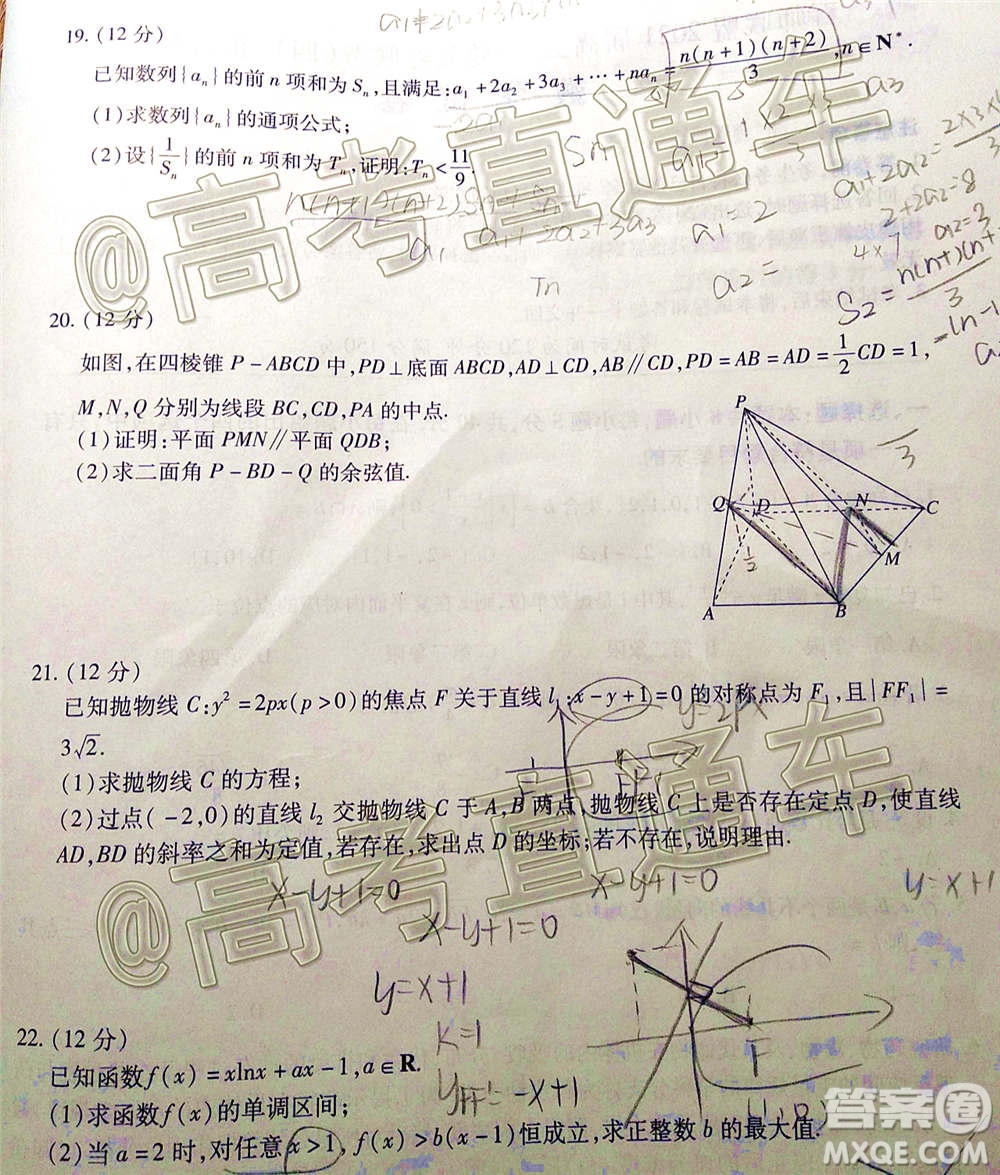 19. (12 分)
已知数列{aₙ}的前 n 项和为 Sₙ,且满足:a₁+2a₂+3a₃+⋯+naₙ=n(n+1)(n+2)/3,n∈N*.
(1)求数列{aₙ}的通项公式;
(2)设{1/Sₙ}的前 n 项和为 Tₙ,证明:Tₙ<11/9.
a₁+2a₂+3a₃
a₁ 2
a₂=
Tn
a₁+2a₂=
2+2a₂=8
a₂=3
20. (12 分)
如图,在四棱锥 P-ABCD 中,PD⊥底面 ABCD,AD⊥CD,AB∥CD,PD=AB=AD=1/2CD=1,
M,N,Q 分别为线段 BC,CD,PA 的中点.
(1)证明:平面 PMN∥平面 QDB;
(2)求二面角 P-BD-Q 的余弦值.
P
Q D N C
M
A B
21. (12 分)
已知抛物线 C:y²=2px(p>0)的焦点 F 关于直线 l₁:x-y+1=0 的对称点为 F₁,且|FF₁|=
3√2.
y=2px
(1)求抛物线 C 的方程;
(2)过点(-2,0)的直线 l₂ 交抛物线 C 于 A,B 两点,抛物线 C 上是否存在定点 D,使直线
AD,BD 的斜率之和为定值,若存在,求出点 D 的坐标;若不存在,说明理由.
x-y+1=0 x-y+1=0 y=x+1
x-y+1=0
y=x+1
K=1
22. (12 分)
已知函数 f(x)=xlnx+ax-1,a∈R.
(1)求函数 f(x)的单调区间;
(2)当 a=2 时,对任意 x>1,f(x)>b(x-1)恒成立,求正整数 b 的最大值.
@高考直通车
@高考直通车
答案圈
MXQE.COM